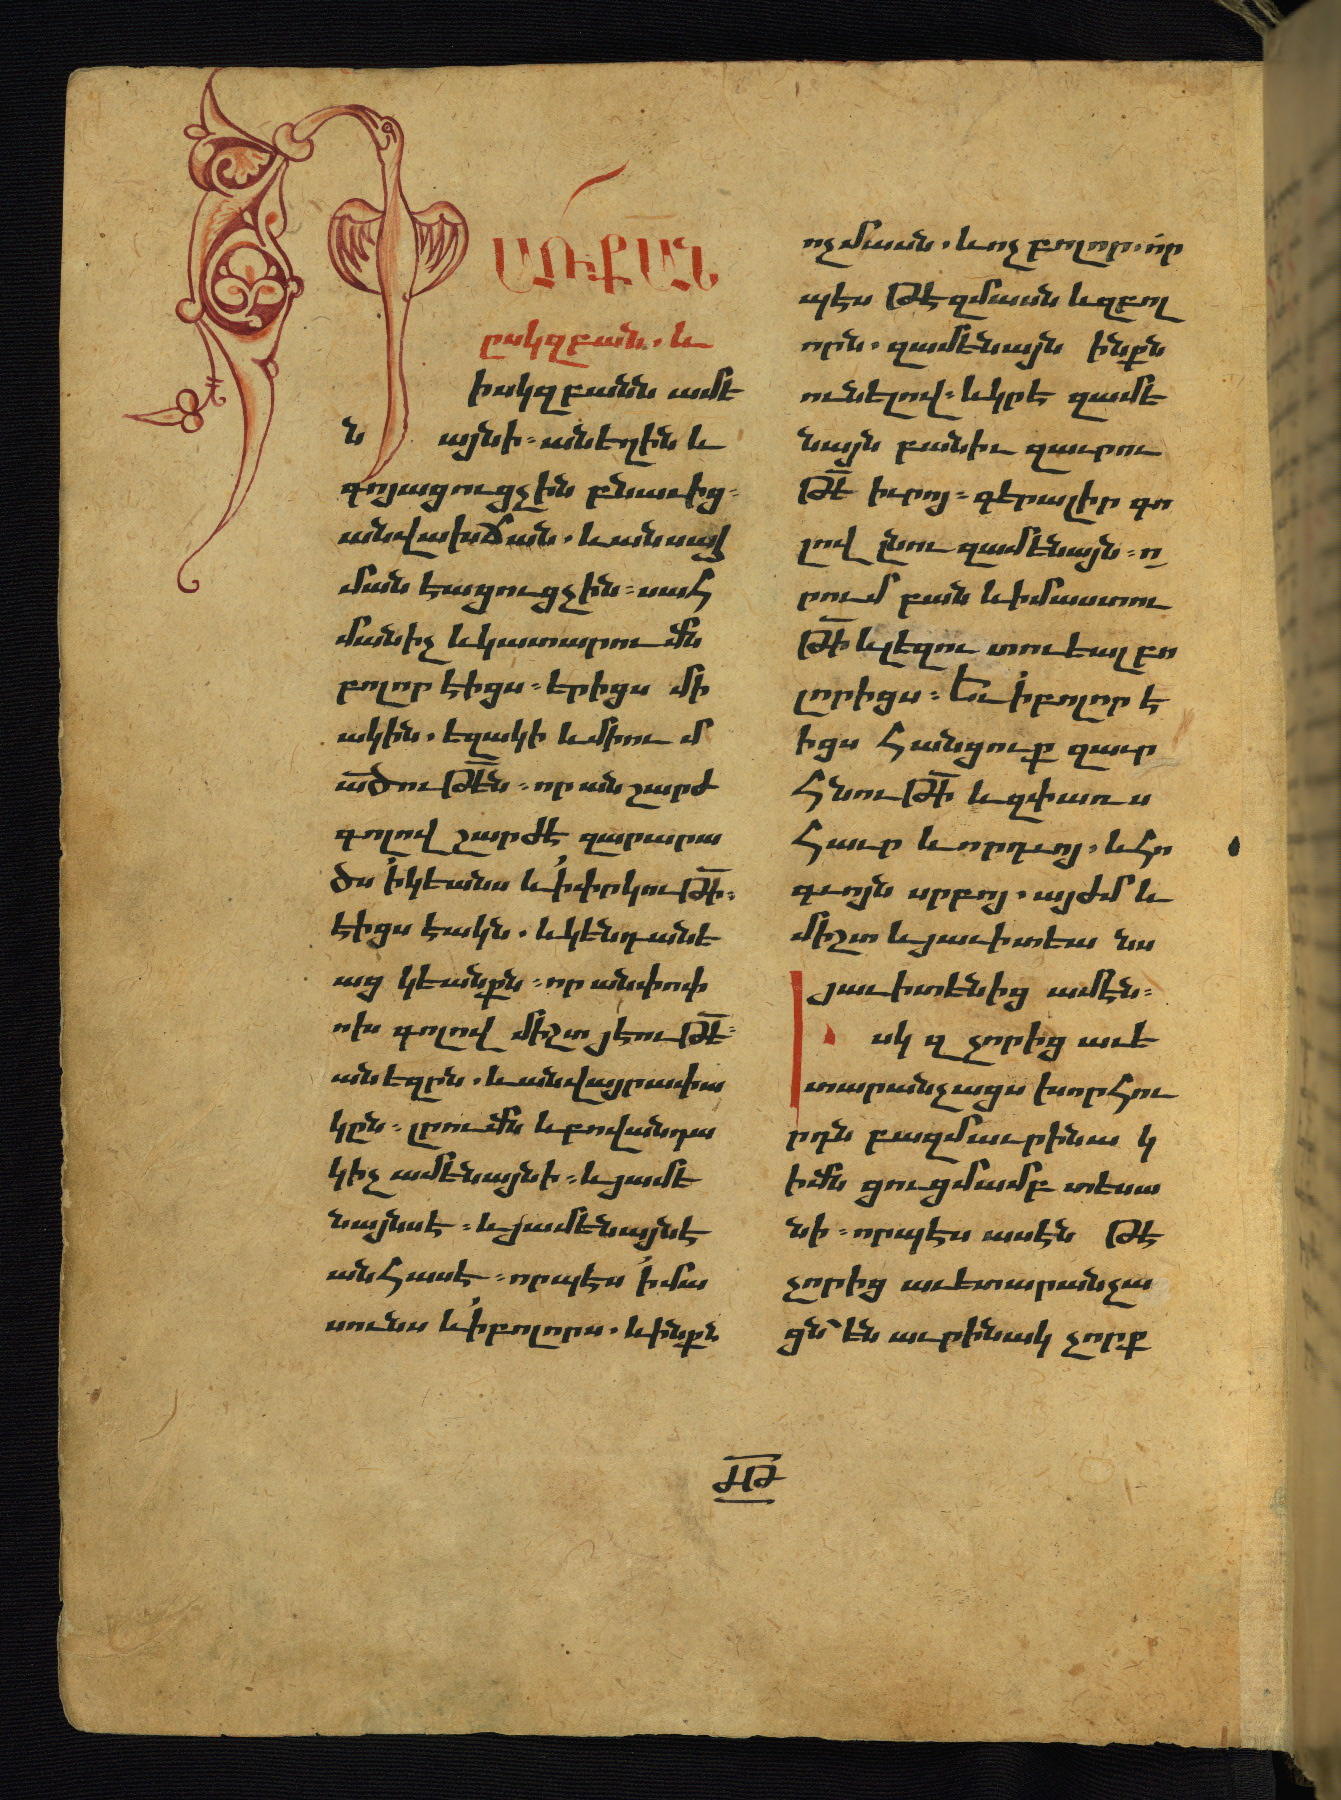 ԱՌՒՔԱՆ
ըսկզբան. և
իսկզբանն ամե
ն այնի՝ անեղին և
գոյացուցչին բնաւից՝
անվախճան. և անսայ
ման էացուցչին՝ սահ
մանիչ և կատարումն
բոլոր էիցս՝ երիցս մի
ակին. եզակի և միում
ածութեն՝ որ անշարժ
գոլով շարժէ զարարա
ծս ի կեանս և ի փրկութի՝
էիցս էակն. և կենդանե
աց կեանքն՝ որ անփոփ
ոխ գոլով միշտ յէութե՝
անեզրն. և անվայրափա
կըն՝ լրումն և բովանդա
կիչ ամենայնի՝ և յամե
նայնսե՝ և յամենայնէ
անհասե՝ որպէս ի մա
սունս և ի բոլորս. և ինքն
ոչ մասն. և ոչ բոլոր. որ
պէս թէ զմասն և զբոլ
որն. զամենայն ինքն
ունելով՝ և կրէ զամե
նայն բանիւ զաւրու
թե իւրոյ՝ գերալիր գո
լով լնու զամենայն՝ ո
րում բան և իմաստու
թի և լեզու տուեալ բո
լորիցս՝ Եւ ի բոլոր է
իցս հանցուք զաւր
հնութի և զփառս
հաւր և որդւոյ. և հո
գւոյն սրբոյ. այժմ և
միշտ և յաւիտեանս
յաւիտենից ամէն՝
Իսկ զչորից աւե
տարանչացս խորհու
րդն բազմաւրինա կ
իմն ցուցմամբ տեսա
նի՝ որպէս ասեն թէ
չորից աւետարանչա
ցն են աւրինակ չորք
ԺԹ